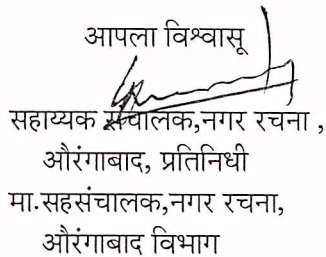 आपला विश्वासू
सहाय्यक संचालक,नगर रचना ,
औरंगाबाद, प्रतिनिधी
मा.सहसंचालक,नगर रचना,
औरंगाबाद विभाग